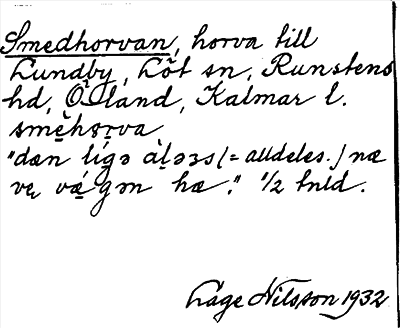 Smedhorvan, horva till
Lundby, Löt sn, Runstens
hd, Öland, Kalmar l.
smèhɷrva
"dæn lígə àḷəɜs (= alldeles.) næ
ve vǽgən hæ." 1/2 tnld.
Lage Nilsson 1932